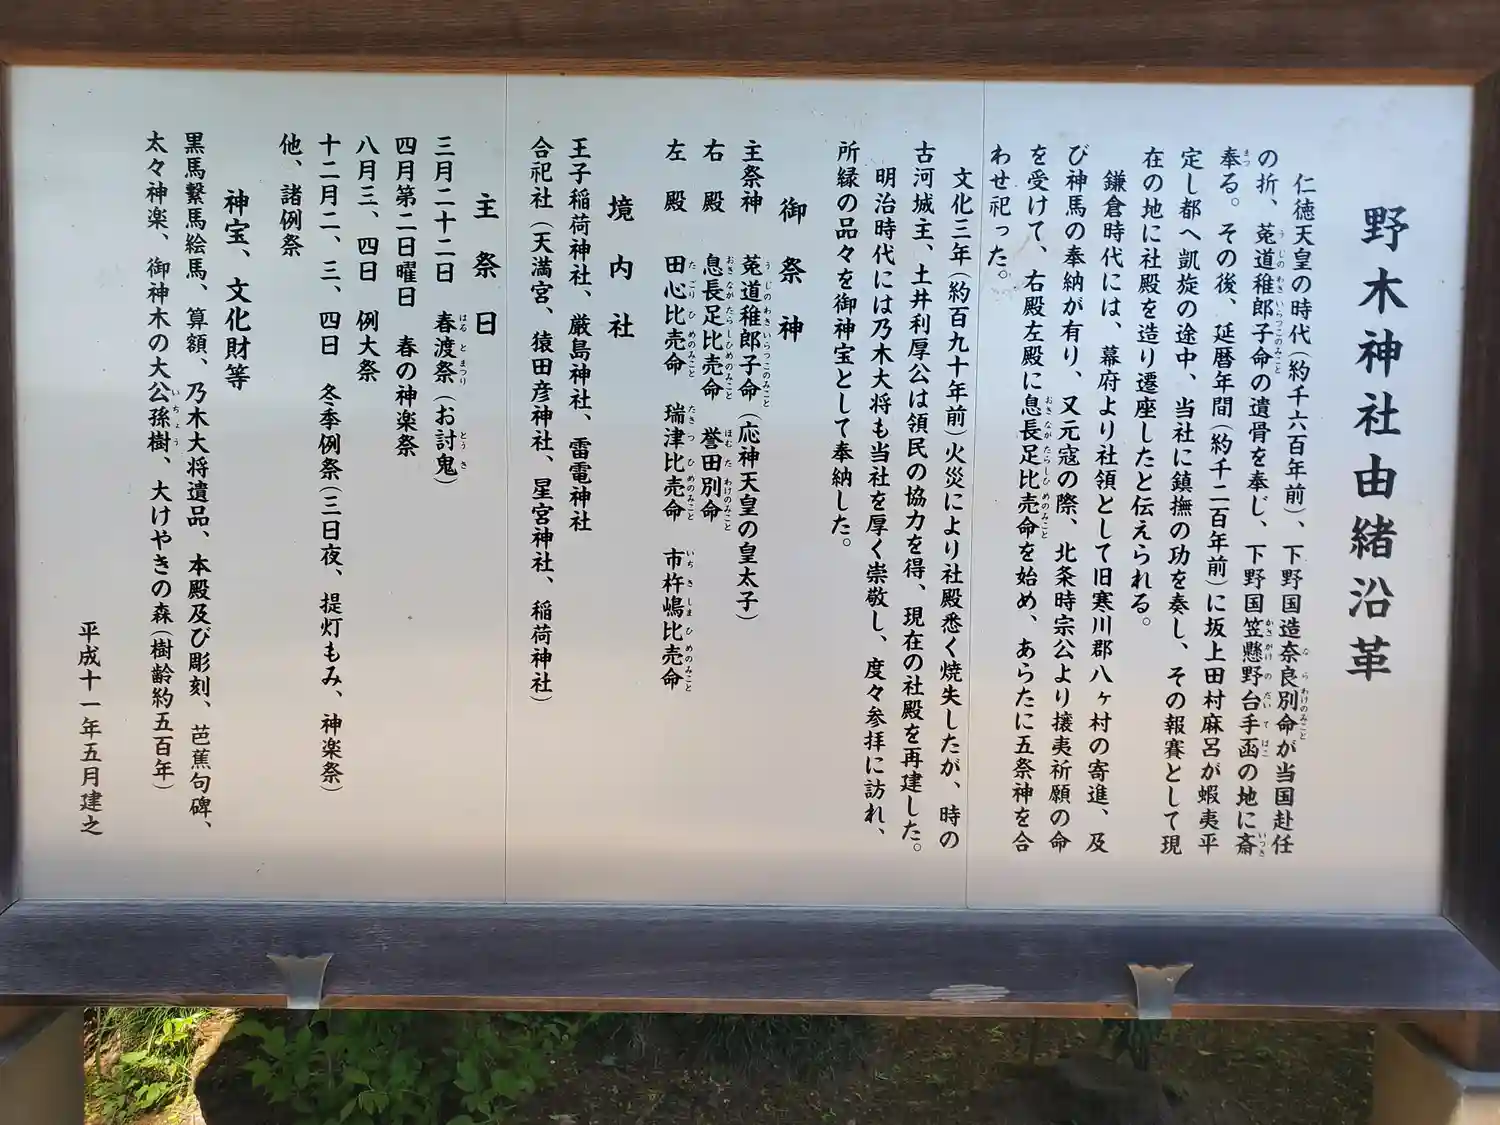 野木神社由緒沿革
仁徳天皇の時代(約千六百年前)、下野国造奈良別命が当国赴任
の折、菟道稚郎子命の遺骨を奉じ、下野国笠懸野台手函の地に斎
奉る。その後、延暦年間(約千二百年前)に坂上田村麻呂が蝦夷平
定し都へ凱旋の途中、当社に鎮撫の功を奏し、その報賽として現
在の地に社殿を造り遷座したと伝えられる。
鎌倉時代には、幕府より社領として旧寒川郡八ヶ村の寄進、及
び神馬の奉納が有り、又元寇の際、北条時宗公より攘夷祈願の命
を受けて、右殿左殿に息長足比売命を始め、あらたに五祭神を合
わせ祀った。
文化三年(約百九十年前)火災により社殿悉く焼失したが、時の
古河城主、土井利厚公は領民の協力を得、現在の社殿を再建した。
明治時代には乃木大将も当社を厚く崇敬し、度々参拝に訪れ、
所縁の品々を御神宝として奉納した。
御祭神
主祭神 菟道稚郎子命(応神天皇の皇太子)
右殿 息長足比売命 誉田別命
左殿 田心比売命 瑞津比売命 市杵嶋比売命
境内社
王子稲荷神社、厳島神社、雷電神社
合祀社(天満宮、猿田彦神社、星宮神社、稲荷神社)
主祭日
三月二十二日 春渡祭(お討鬼)
四月第二日曜日 春の神楽祭
八月三、四日 例大祭
十二月二、三、四日 冬季例祭(三日夜、提灯もみ、神楽祭)
他、諸例祭
神宝、文化財等
黒馬繋馬絵馬、算額、乃木大将遺品、本殿及び彫刻、芭蕉句碑、
太々神楽、御神木の大公孫樹、大けやきの森(樹齢約五百年)
平成十一年五月建之